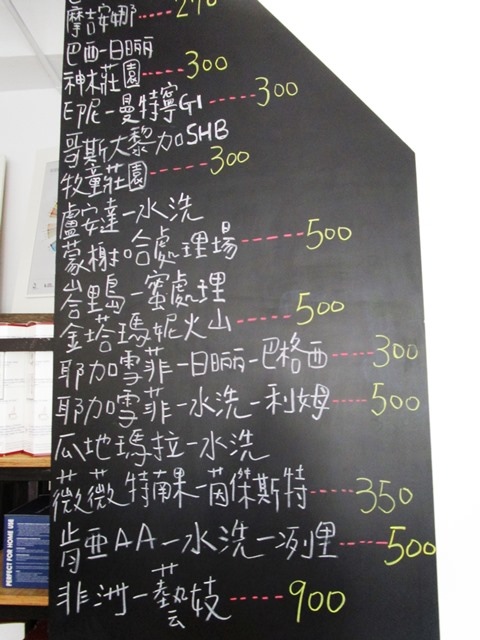 摩吉安娜-----270
巴西-日晒
神木莊園-----300
印尼-曼特寧G1-----300
哥斯大黎加SHB
牧童莊園-----300
盧安達-水洗
蒙榭加合處理場-----500
峇里島-蜜處理
金塔瑪妮火山-----500
耶加雪菲-日晒-巴格西----300
耶加雪菲-水洗-利姆----500
瓜地瑪拉-水洗
薇薇特南果-茵傑斯特----350
肯亞AA-水洗-冽里----500
非洲-藝妓-----900
PERFECT FOR HOME USE